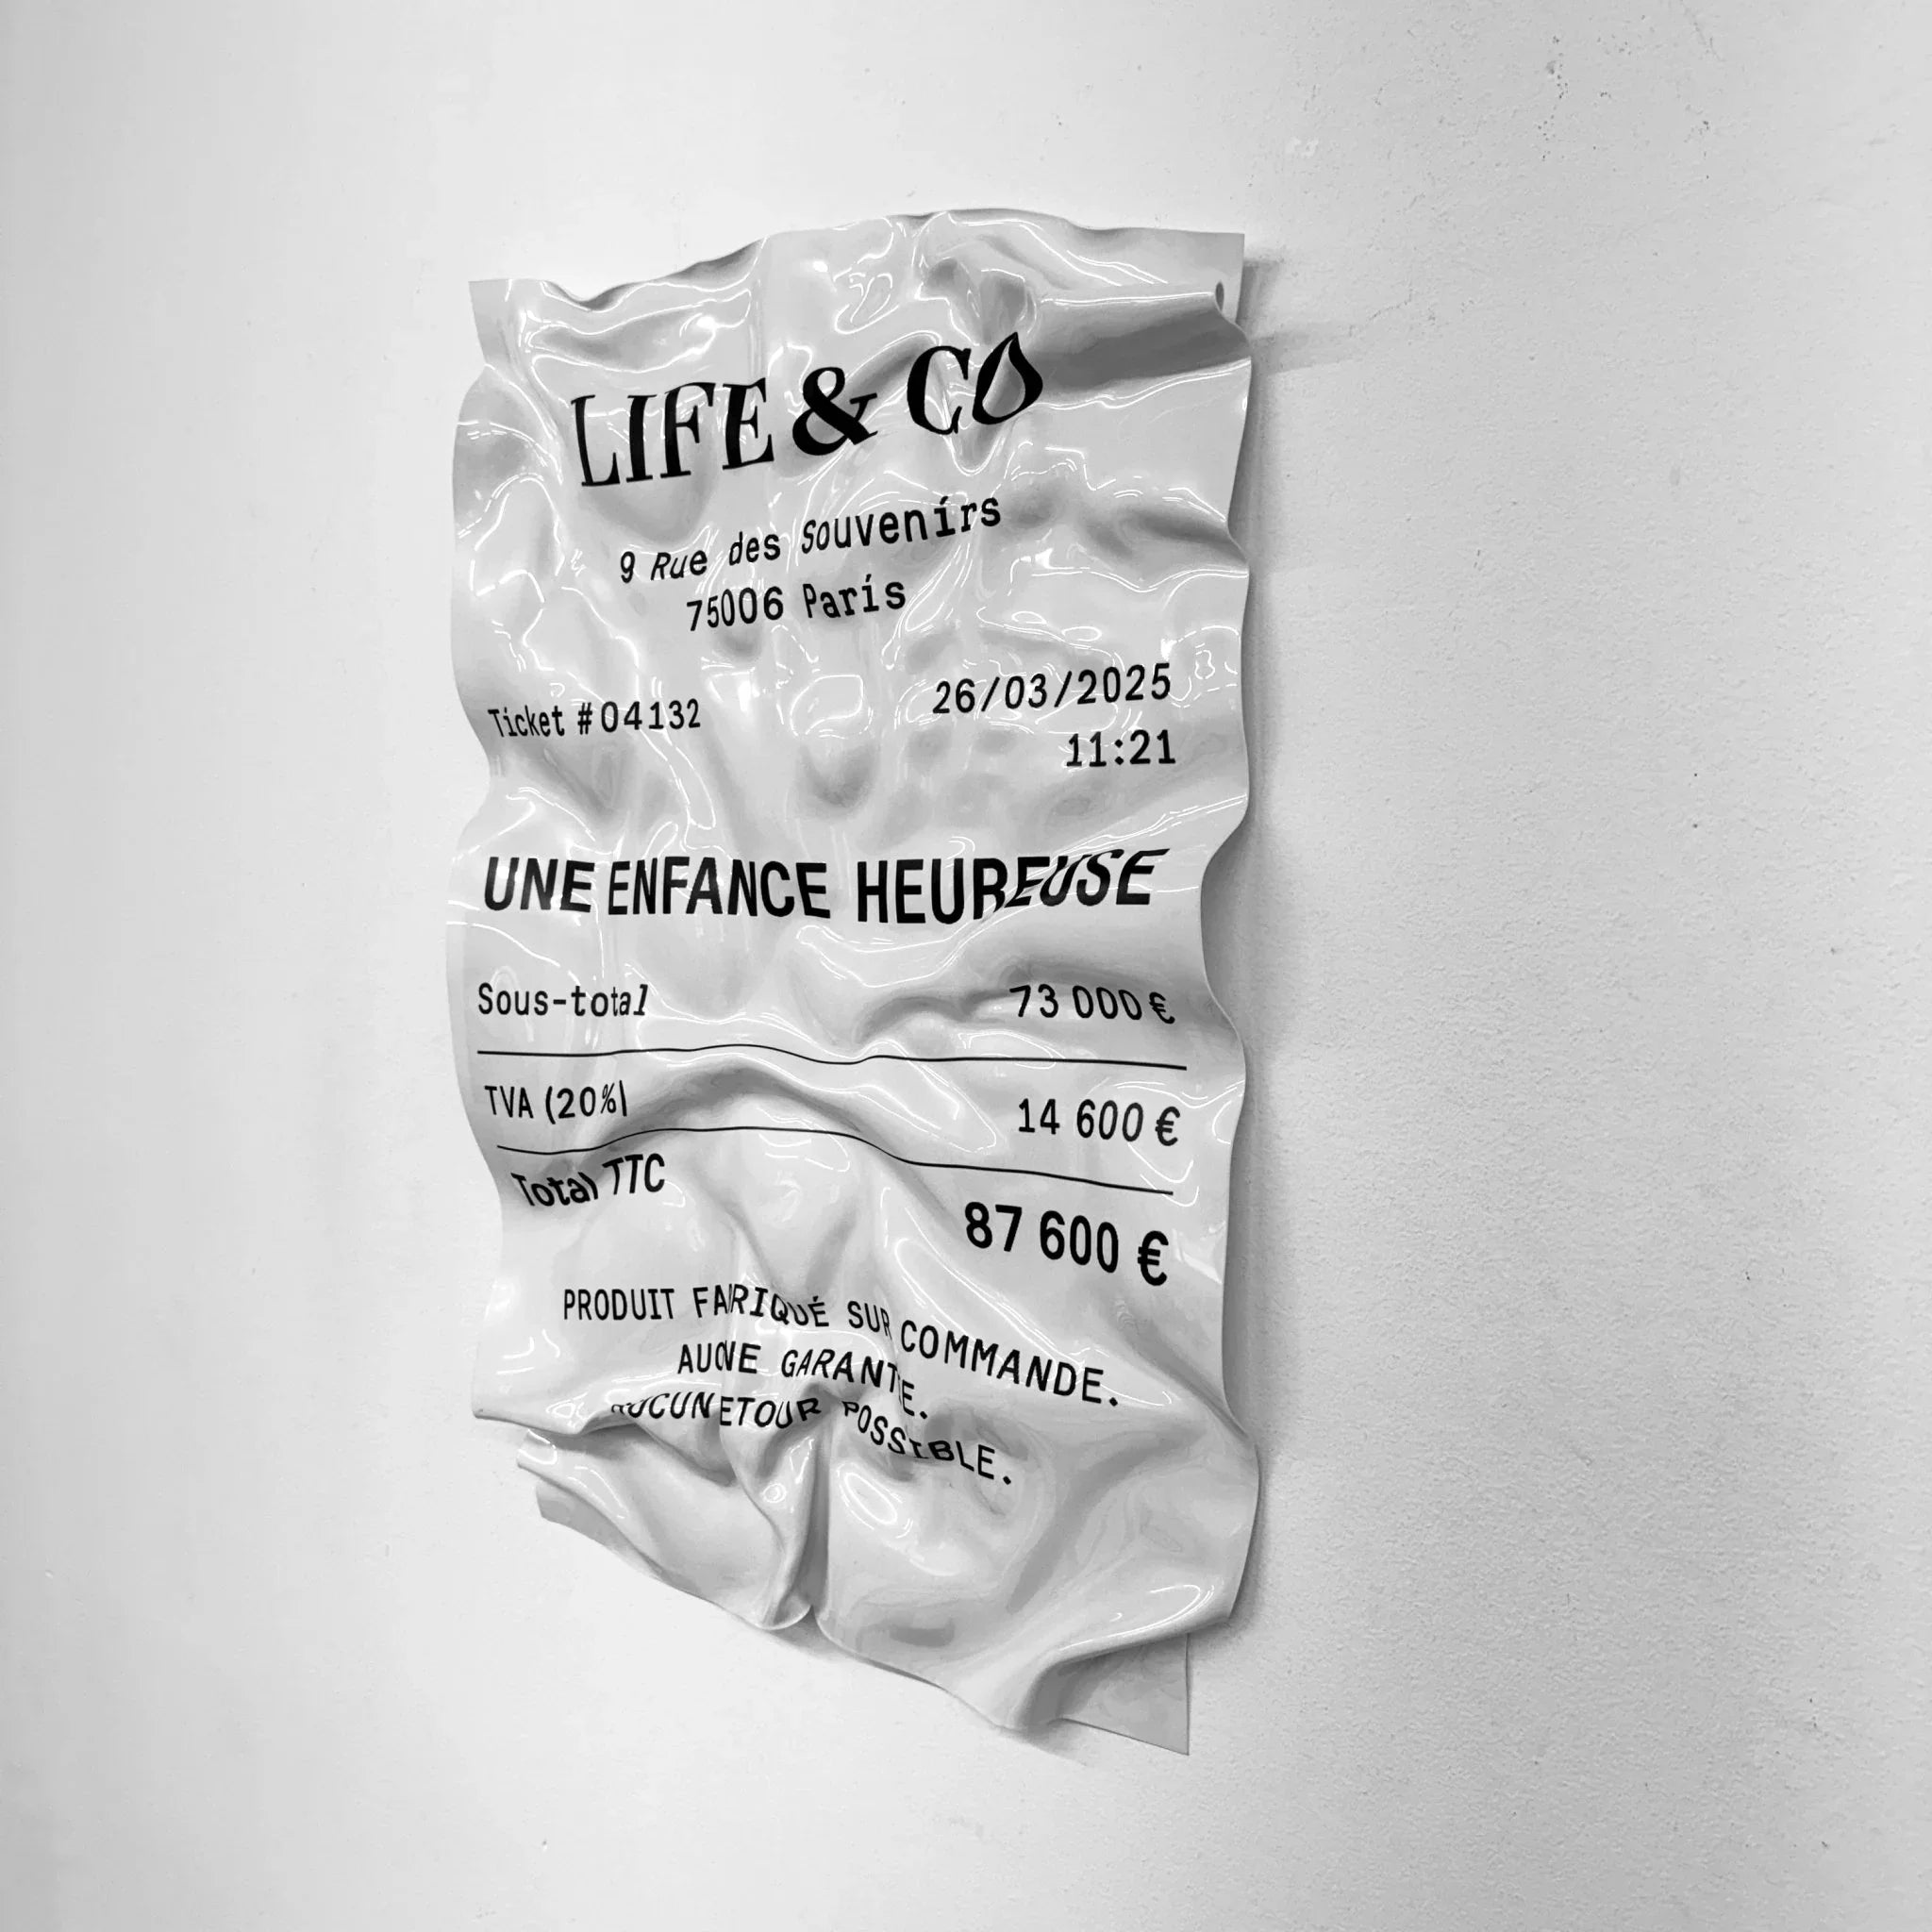 LIFE & CO
9 Rue des Souvenirs
75006 Paris
Ticket #04132
26/03/2025
11:21
UNE ENFANCE HEUREUSE
Sous-total 73 000 €
TVA (20%) 14 600 €
Total TTC
87 600 €
PRODUIT FABRIQUÉ SUR COMMANDE.
AUCUNE GARANTIE.
AUCUN RETOUR POSSIBLE.